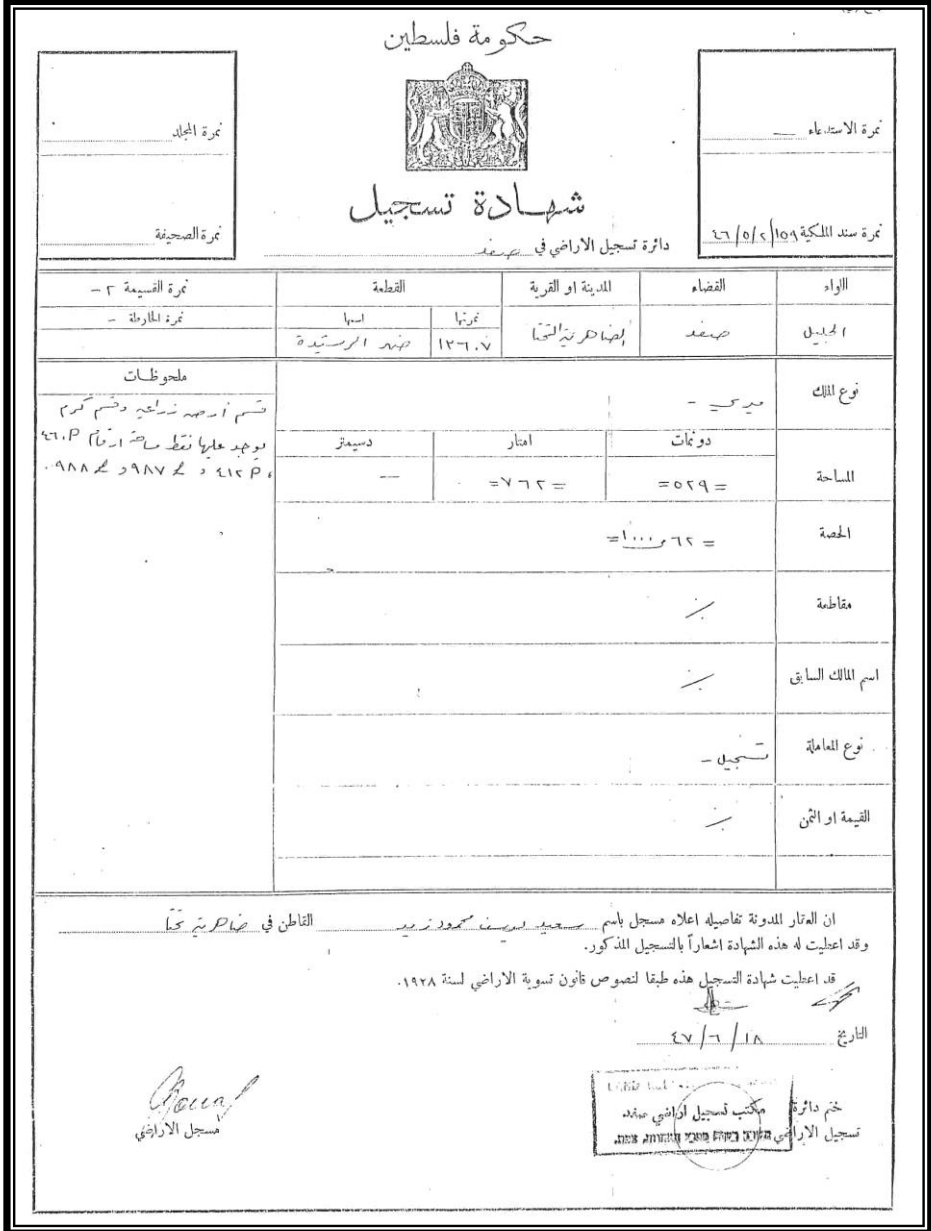 حكومة فلسطين
نمرة الاستدعاء —
نمرة المجلد
شهادة تسجيل
نمرة سند الملكية ٤٦/٥/٢/١٥٩
دائرة تسجيل الاراضي في صفد
نمرة الصحيفة
اللواء
القضاء
المدينة او القرية
القطعة
نمرة القسيمة ٢-
نمرتها
اسمها
نمرة الخارطة -
الجليل
صفد
الضاهرية التحتا
١٣٦٠٧
ملحوظات
نوع الملك
ميري -
قسم أرض زراعية وقسم كرم
يوجد عليها نقط مساحة ارقام ٤٦٠P
٤١٢P و ٩٨٧ و ٩٨٨
دونمات
امتار
دسيمتر
المساحة
=٥٢٩=
=٧٦٢=
—
الحصة
مقاطعة
اسم المالك السابق
نوع المعاملة
تسجيل -
القيمة او الثمن
ان العقار المدونة تفاصيله اعلاه مسجل باسم سعيد يوسف محمود زيد القاطن في ضاهرية تحتا
وقد اعطيت له هذه الشهادة اشعاراً بالتسجيل المذكور.
قد اعطيت شهادة التسجيل هذه طبقا لنصوص قانون تسوية الاراضي لسنة ١٩٢٨.
التاريخ ٤٧/٦/١٨
ختم دائرة
تسجيل الاراضي
مكتب تسجيل اراضي صفد
مسجل الاراضي